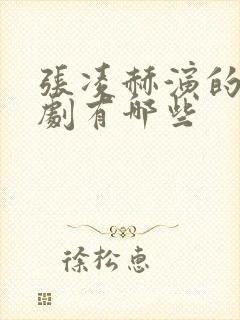 張凌赫演的
劇有哪些
徐松惠